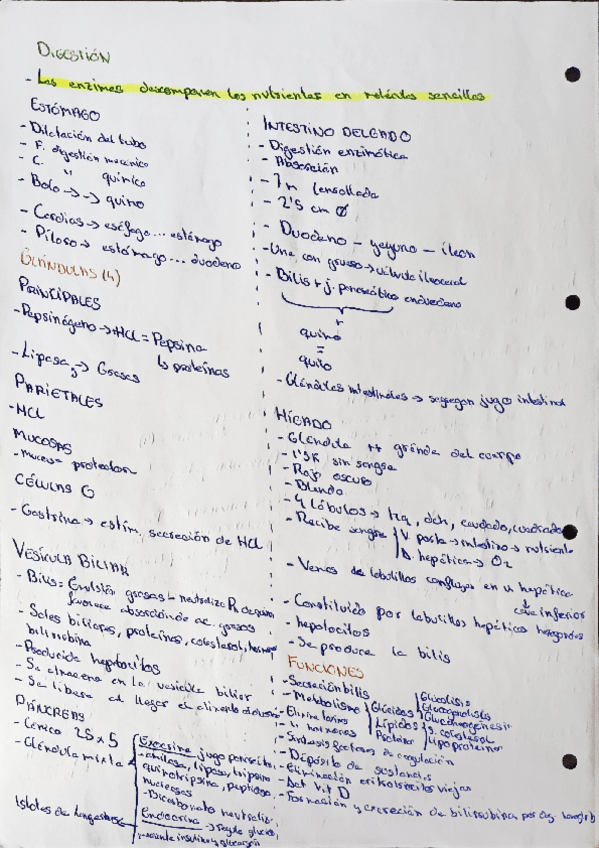 DIGESTIÓN
- Las enzimas descomponen los nutrientes en moléculas sencillas
ESTÓMAGO
- Dilatación del tubo
- F. digestión mecánica
- C. " química
- Bolo → → quimo
- Cardias → esófago... estómago
- Píloro → estómago... duodeno
GLÁNDULAS (4)
PRINCIPALES
- Pepsinógeno → HCL = Pepsina
↳ proteínas
- Lipasa → Grasas
PARIETALES
- HCL
MUCOSAS
- mucosa protectora
CÉLULAS G
- Gastrina → estim. secreción de HCL
VESÍCULA BILIAR
- Bilis = Emulsión grasas - neutraliza
favorece absorción de ac. grasos
- Sales biliares, proteínas, colesterol, hormonas
bilirrubina
- Producida hepatocitos
- Se almacena en la vesícula biliar
- Se libera al llegar el alimento
PÁNCREAS
- Cónico 25 x 5
- Glándula mixta
Exocrina: jugo pancreático
- amilasa, lipasa, tripsina
quimotripsina, peptidasa
nucleasas
- Bicarbonato neutraliz.
Islotes de Langerhans
Endocrina → regula glucosa
insulina y glucagón
INTESTINO DELGADO
- Digestión enzimática
- Absorción
- 7 m enrollada
- 2'5 cm Ø
- Duodeno - yeyuno - ileon
- Une con grueso → válvula ileocecal
- Bilis + j. pancreático en duodeno
+
quimo
=
quilo
- Glándulas intestinales → segregan jugo intestinal
HÍGADO
- Glándula ++ grande del cuerpo
- 1'5K sin sangre
- Rojo oscuro
- Blando
- 4 lóbulos → izq, dch, caudado, cuadrado
- Recibe sangre
V. porta → intestino → nutriente
A. hepática → O2
- Venas de lobulillos confluyen en v. hepática
↓
cava inferior
- Constituido por lobulillos hepáticos hexagonales
- hepatocitos
- Se produce la bilis
FUNCIONES
- Secreción bilis
- Metabolismo
Glúcidos
Glucolisis
Glucogenolisis
Gluconeogenesis
Lípidos
colesterol
Proteína
lipoproteína
- Elimina
hormonas
- Síntesis factores de coagulación
- Depósito de sustancias
- Eliminación eritrocitos viejos
- Act vit D
- Formación y excreción de bilirrubina por